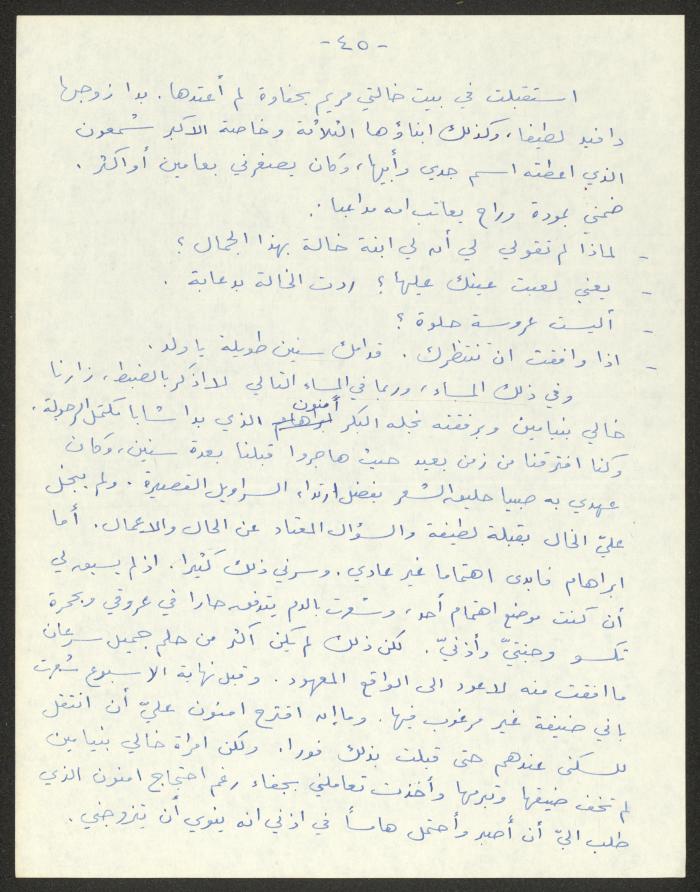 - ٤٥ -
استقبلت في بيت خالتي مريم بحفاوة لم أعتدها. بدا زوجها
دافيد لطيفا، وكذلك ابناؤها الثلاثة وخاصة الاكبر شمعون
الذي اعطته اسم جدي وأبيها، وكان يصغرني بعامين أو اكثر.
ضمني بمودة وراح يعاتب امه مداعبا:
- لماذا لم تقولي لي أن لي ابنة خالة بهذا الجمال؟
- يعني لعبت عينك عليها؟ ردت الخالة بدعابة.
- أليست عروسة حلوة؟
- اذا وافقت ان تنتظرك. قدامك سنين طويلة يا ولد.
وفي ذلك المساء، وربما في المساء التالي لا اذكر بالضبط، زارنا
خالي بنيامين وبرفقته نجله البكر ابراهام أمنون الذي بدا شابا مكتمل الرجولة.
وكنا افترقنا من زمن بعيد حيث هاجروا قبلنا بعدة سنين، وكان
عهدي به صبيا حليق الشعر يفضل ارتداء السراويل القصيرة. ولم يبخل
عليّ الخال بقبلة لطيفة والسؤال المعتاد عن الحال والاعمال. أما
ابراهام فابدى اهتماما غير عادي. وسرني ذلك كثيرا. اذ لم يسبق لي
أن كنت موضع اهتمام أحد، وشعرت بالدم يتدفق حارا في عروقي وبحمرة
تكسو وجنتيّ وأذنيّ. لكن ذلك لم يكن اكثر من حلم جميل سرعان
ما افقت منه لاعود الى الواقع المعهود. وقبل نهاية الاسبوع شعرت
باني ضيفة غير مرغوب فيها. وما إن اقترح امنون عليّ أن انتقل
للسكنى عندهم حتى قبلت بذلك فورا. ولكن امرأة خالي بنيامين
لم تخف ضيقها وتبرمها وأخذت تعاملني بجفاء رغم احتجاج امنون الذي
طلب اليّ أن أصبر وأحتمل هامساً في اذني انه ينوي أن يتزوجني.